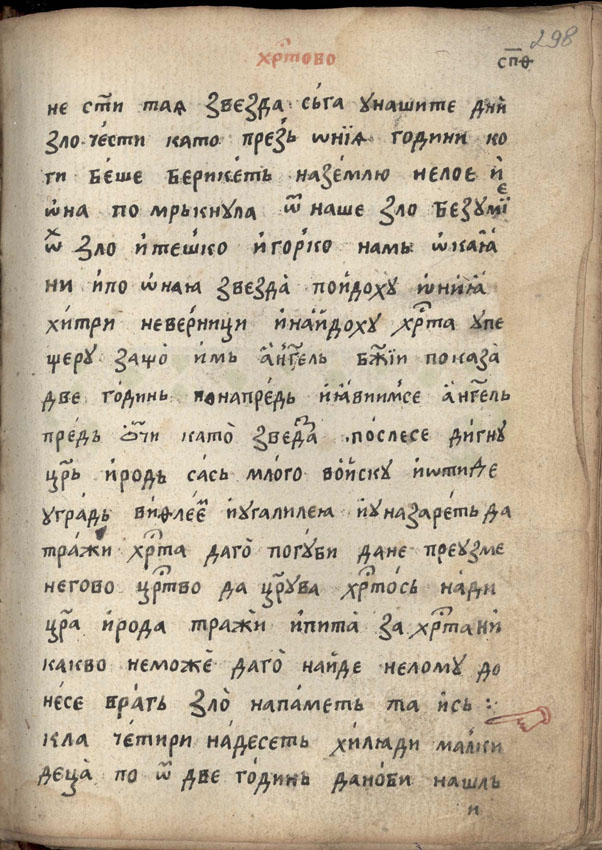 хрⷭ҇тово
спѳ 298
не сти таꙗ ꙁвеꙁда сьга унашите днїи
ꙁлочести като преꙁь ѡнїѧ години ко
ги беше берикеть наꙁемлю нелое и҆
ѡна помрькнула ѿ наше ꙁло беꙁумїе
ѿх ꙁло и҆тешко и҆горко намь ѡкаꙗ
ни и҆по ѡнаꙗ ꙁвеꙁда̀ поидоху и҆ѡниꙗ
хитри неверници и҆наидоху хрⷭ҇та упе
щеру ꙁащо̀ имь а҆нгⷢ҇ель бж҃їи покаꙁа̀
две го́динь понапре́дь и҆ꙗвиимсе а҆нгⷢ҇ель
пре́дь ѻчи като̀ ꙁведⷥа послесе дигну
цр҃ь и҆родь сась мло́го во́йску и҆ѡтиде
угра́дь виѳлее́мⷨ и҆угалилею и҆унаꙁареть да
тражи хрⷭ҇та даго̀ погу́би дане преуꙁме
негово црⷭ҇тво да цр҃ува хрⷭ҇то́сь на́ди
цр҃а и҆рода тражи и҆пита̀ ꙁа хрⷭ҇та ни
какво неможѐ даго̀ найде нелому до
не́се вра́ть ꙁло̀ напа́меть та и҆сь :
кла че́тири на́десеть хи́люди малки
деца̀ по ѿ две го́динь дано́би нашль
и